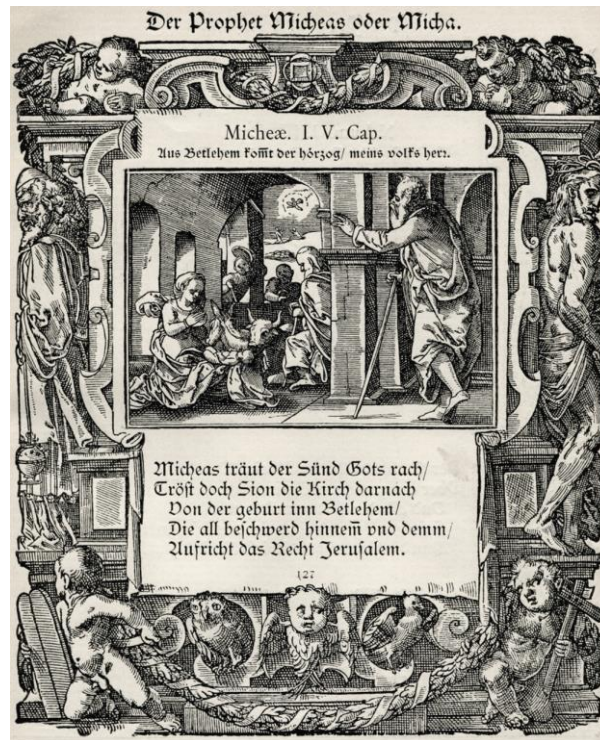 Der Prophet Micheas oder Micha.
Micheæ. I. V. Cap.
Aus Betlehem kom̃t der hörzog/ meins volks herr.
Micheas träut der Sünd Gots rach/
Tröst doch Sion die Kirch darnach
Von der geburt inn Betlehem/
Die all beschwerd hinnem̃ vnd demm/
Aufricht das Recht Jerusalem.
127